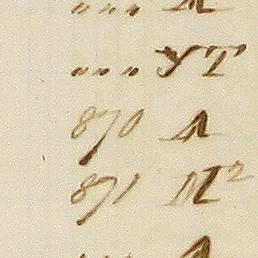 „ „ „ A
„ „ „ YT
870 A
871 M²